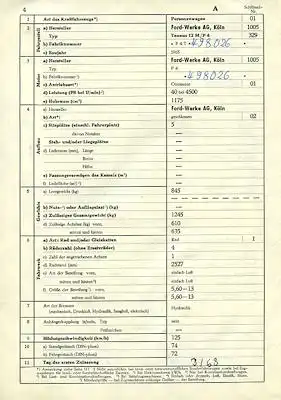 4 A Schlüssel-Nr.
1 Art des Kraftfahrzeugs*) Personenwagen 01
2 Fahrgestell a) Hersteller Ford-Werke AG, Köln 1005
Typ Taunus 12 M/P 4 329
b) Fabriknummer 498026
c) Baujahr 1965
3 Motor a) Hersteller Ford-Werke AG, Köln 1005
Typ P 4
b) Fabriknummer 498026
c) Antriebsart*) Ottomotor 01
d) Leistung (PS bei U/min) 40 bei 4500
e) Hubraum (cm³) 1175
4 Aufbau a) Hersteller Ford-Werke AG, Köln
b) Art*) geschlossen 02
c) Sitzplätze (einschl. Fahrerplatz) 5
davon Notsitze —
Steh- und/oder Liegeplätze —
d) Laderaum (mm), Länge —
Breite —
Höhe —
e) Fassungsvermögen des Kessels (m³) —
f) Ladefläche (m²) —
5 Gewichte a) Leergewicht (kg) 845
b) Nutz- oder Auflieglast (kg) —
c) Zulässiges Gesamtgewicht (kg) 1245
d) Zulässige Achslast (kg), vorn 610
mitten und hinten 635
6 Fahrwerk a) Art: Rad und/oder Gleisketten Rad 1
b) Räderzahl (ohne Ersatzräder) 4
c) Zahl der angetriebenen Achsen 1
d) Radstand (mm) 2527
e) Art der Bereifung vorn einfach Luft
mitten und hinten einfach Luft
f) Größe der Bereifung vorn 5,60—13
mitten und hinten 5,60—13
7 Art der Bremsen Hydraulik
(mechanisch, Druckluft, Hydraulik, Saugluft, elektrisch)
8 Anhängerkupplung ja/nein, Typ nein
Prüfzeichen —
9 Höchstgeschwindigkeit (km/h) 125
10 a) Standgeräusch (DIN-phon) 74
b) Fahrgeräusch (DIN-phon) 72
11 Tag der ersten Zulassung